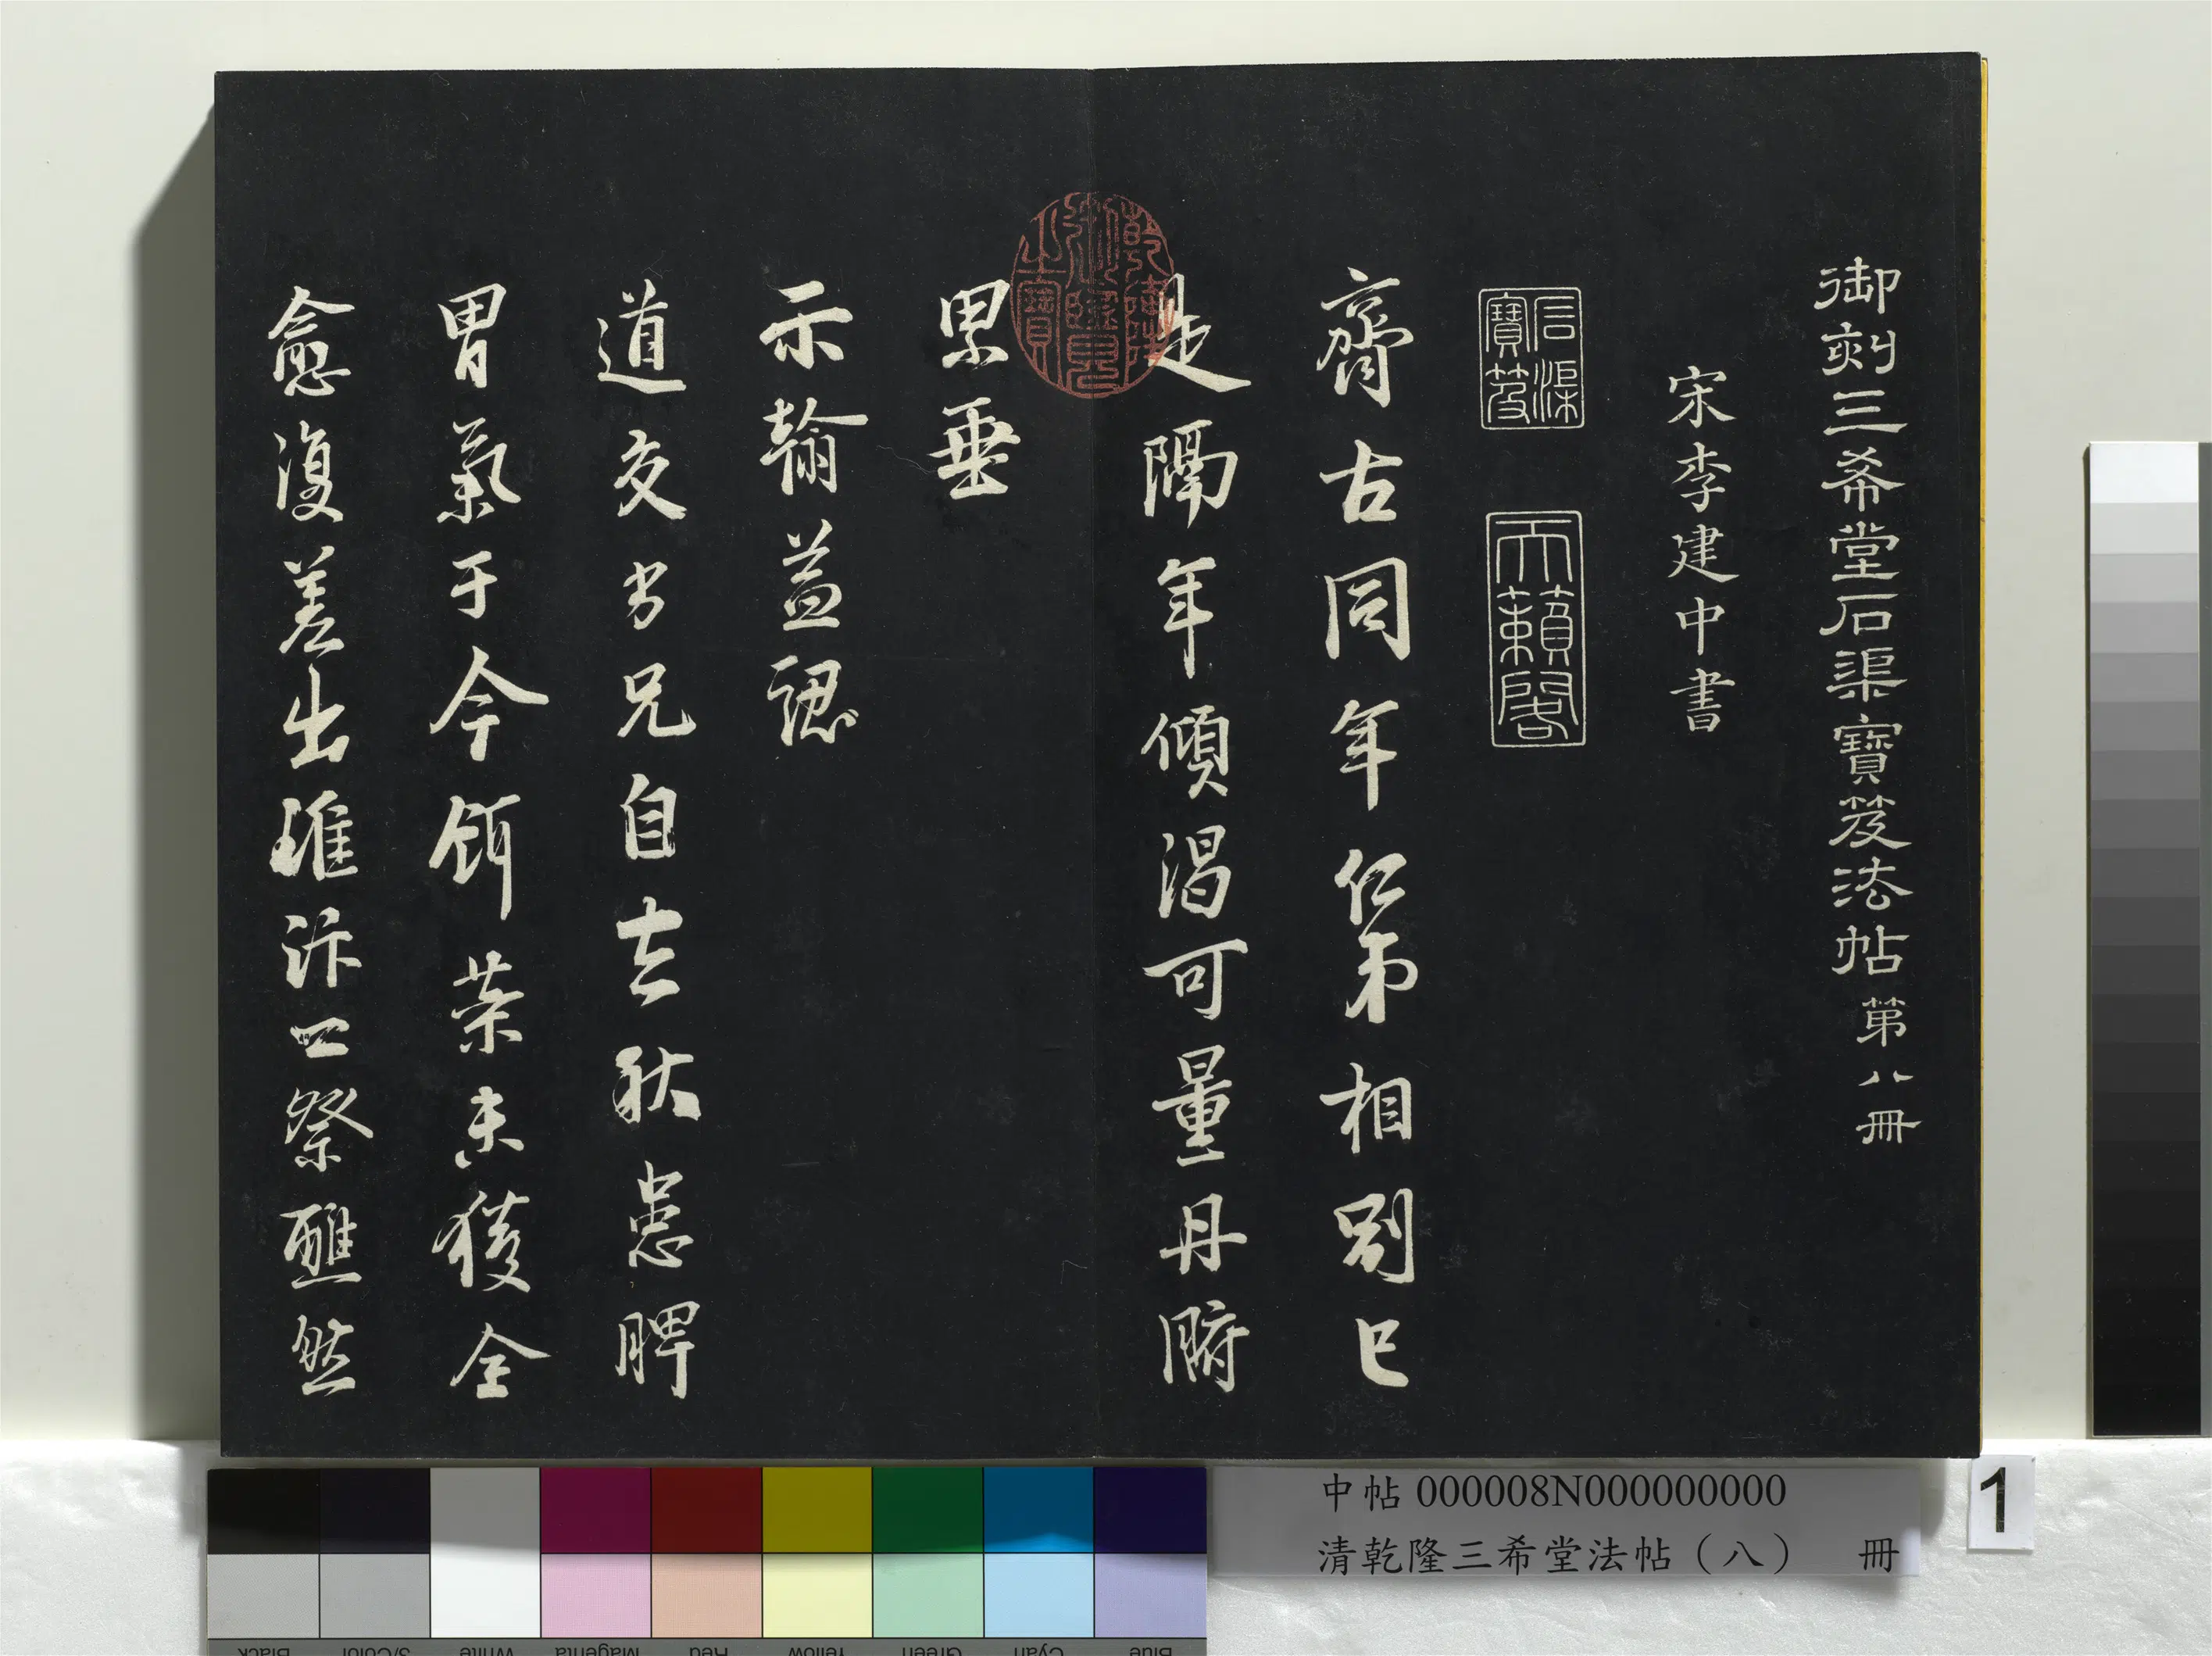 御刻三希堂石渠寶笈法帖第八冊
宋李建中書
石渠寶笈
天籟閣
齊古同年仁弟相別已
是隔年傾渴可量丹腑
累垂
示翰益認
道交劣兄自去秋患脾
胃氣于今餌藥未獲全
愈復差出汴口祭醮然
中帖 000008N000000000
清乾隆三希堂法帖（八） 冊
1
Blue Cyan Green Yellow Red Magenta White 3/Color Black